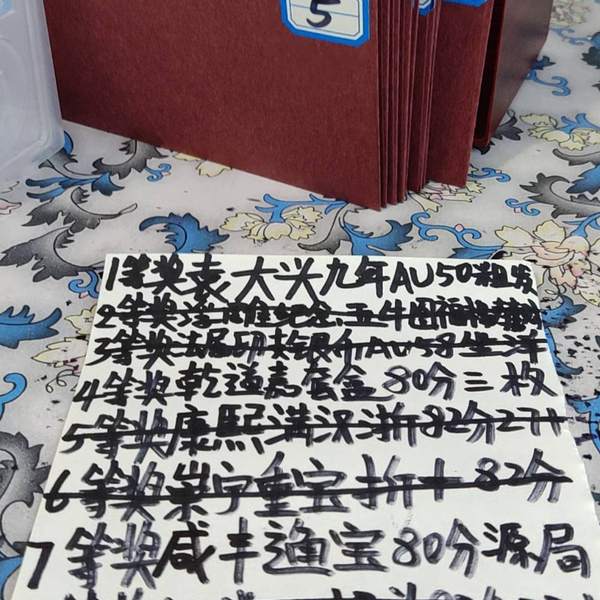 5
1等奖袁大头九年AU50粗发
2等奖
3等奖法属印支银币AU58坐洋
4等奖乾道嘉套盒80分三枚
5等奖康熙满汉浙82分27
6等奖崇宁重宝折十82分
7等奖咸丰通宝80分源局